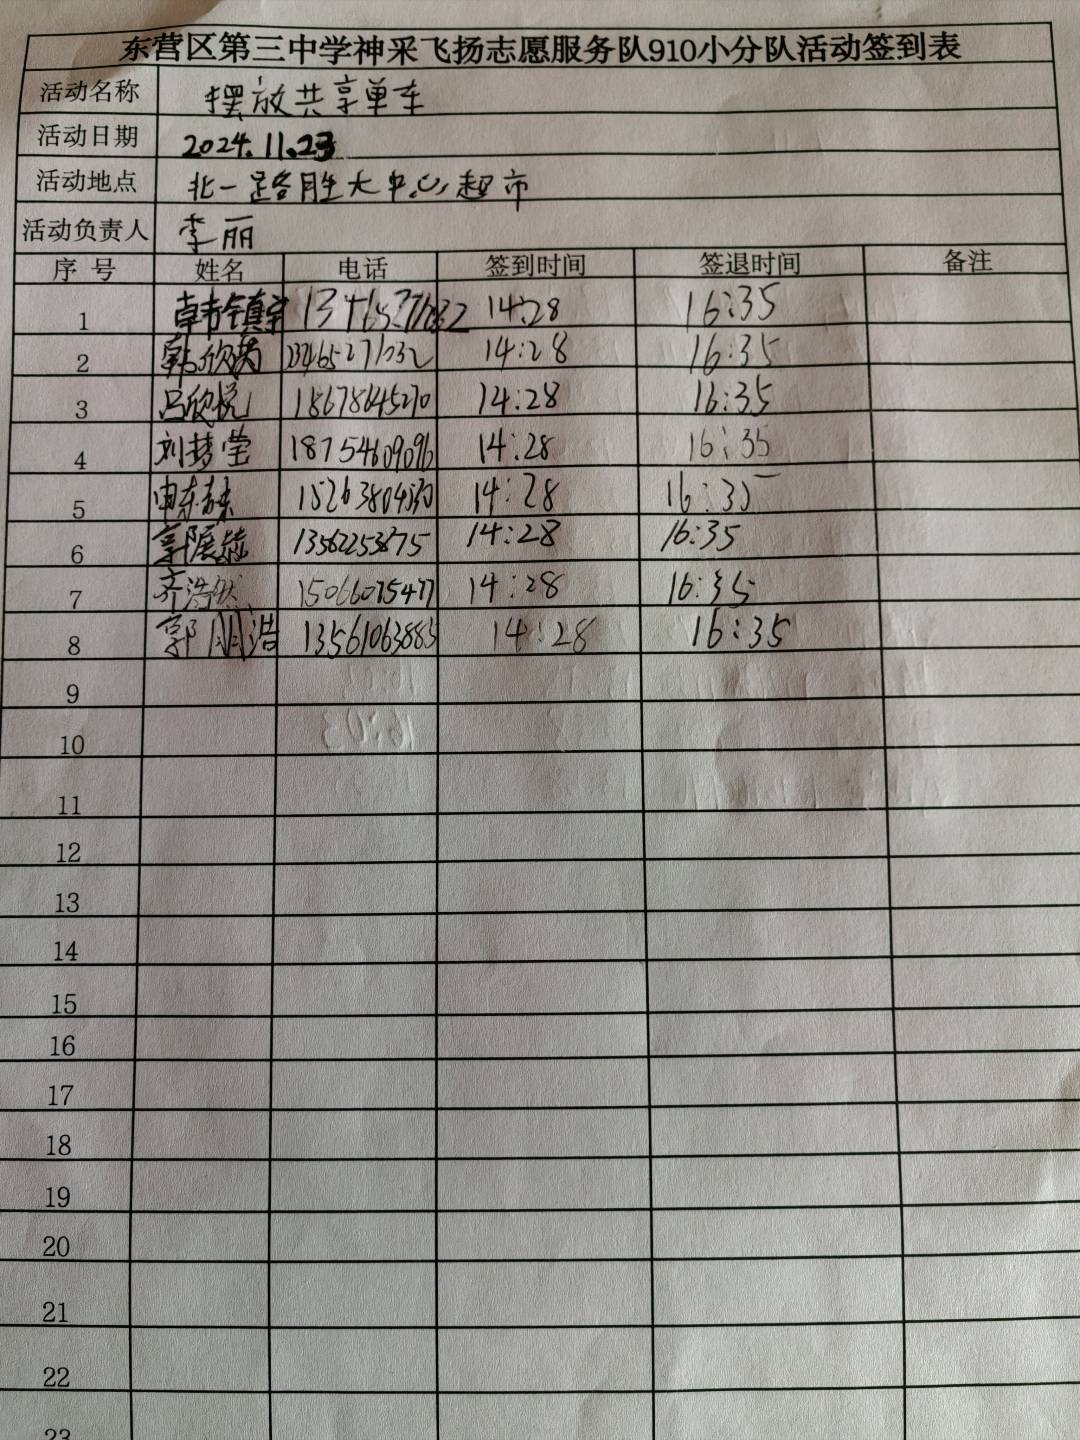 东营区第三中学神采飞扬志愿服务队910小分队活动签到表
活动名称 摆放共享单车
活动日期 2024.11.23
活动地点 北一路胜大中心超市
活动负责人 李丽
序号 姓名 电话 签到时间 签退时间 备注
1 韩镇宇 13465271032 14:28 16:35
2 韩欣芮 13465271032 14:28 16:35
3 吕欣悦 18678645270 14:28 16:35
4 刘梦莹 18754609096 14:28 16:35
5 15263804330 14:28 16:35
6 13562253675 14:28 16:35
7 齐浩然 15066075477 14:28 16:35
8 郭明浩 13561063883 14:28 16:35
9
10
11
12
13
14
15
16
17
18
19
20
21
22
23